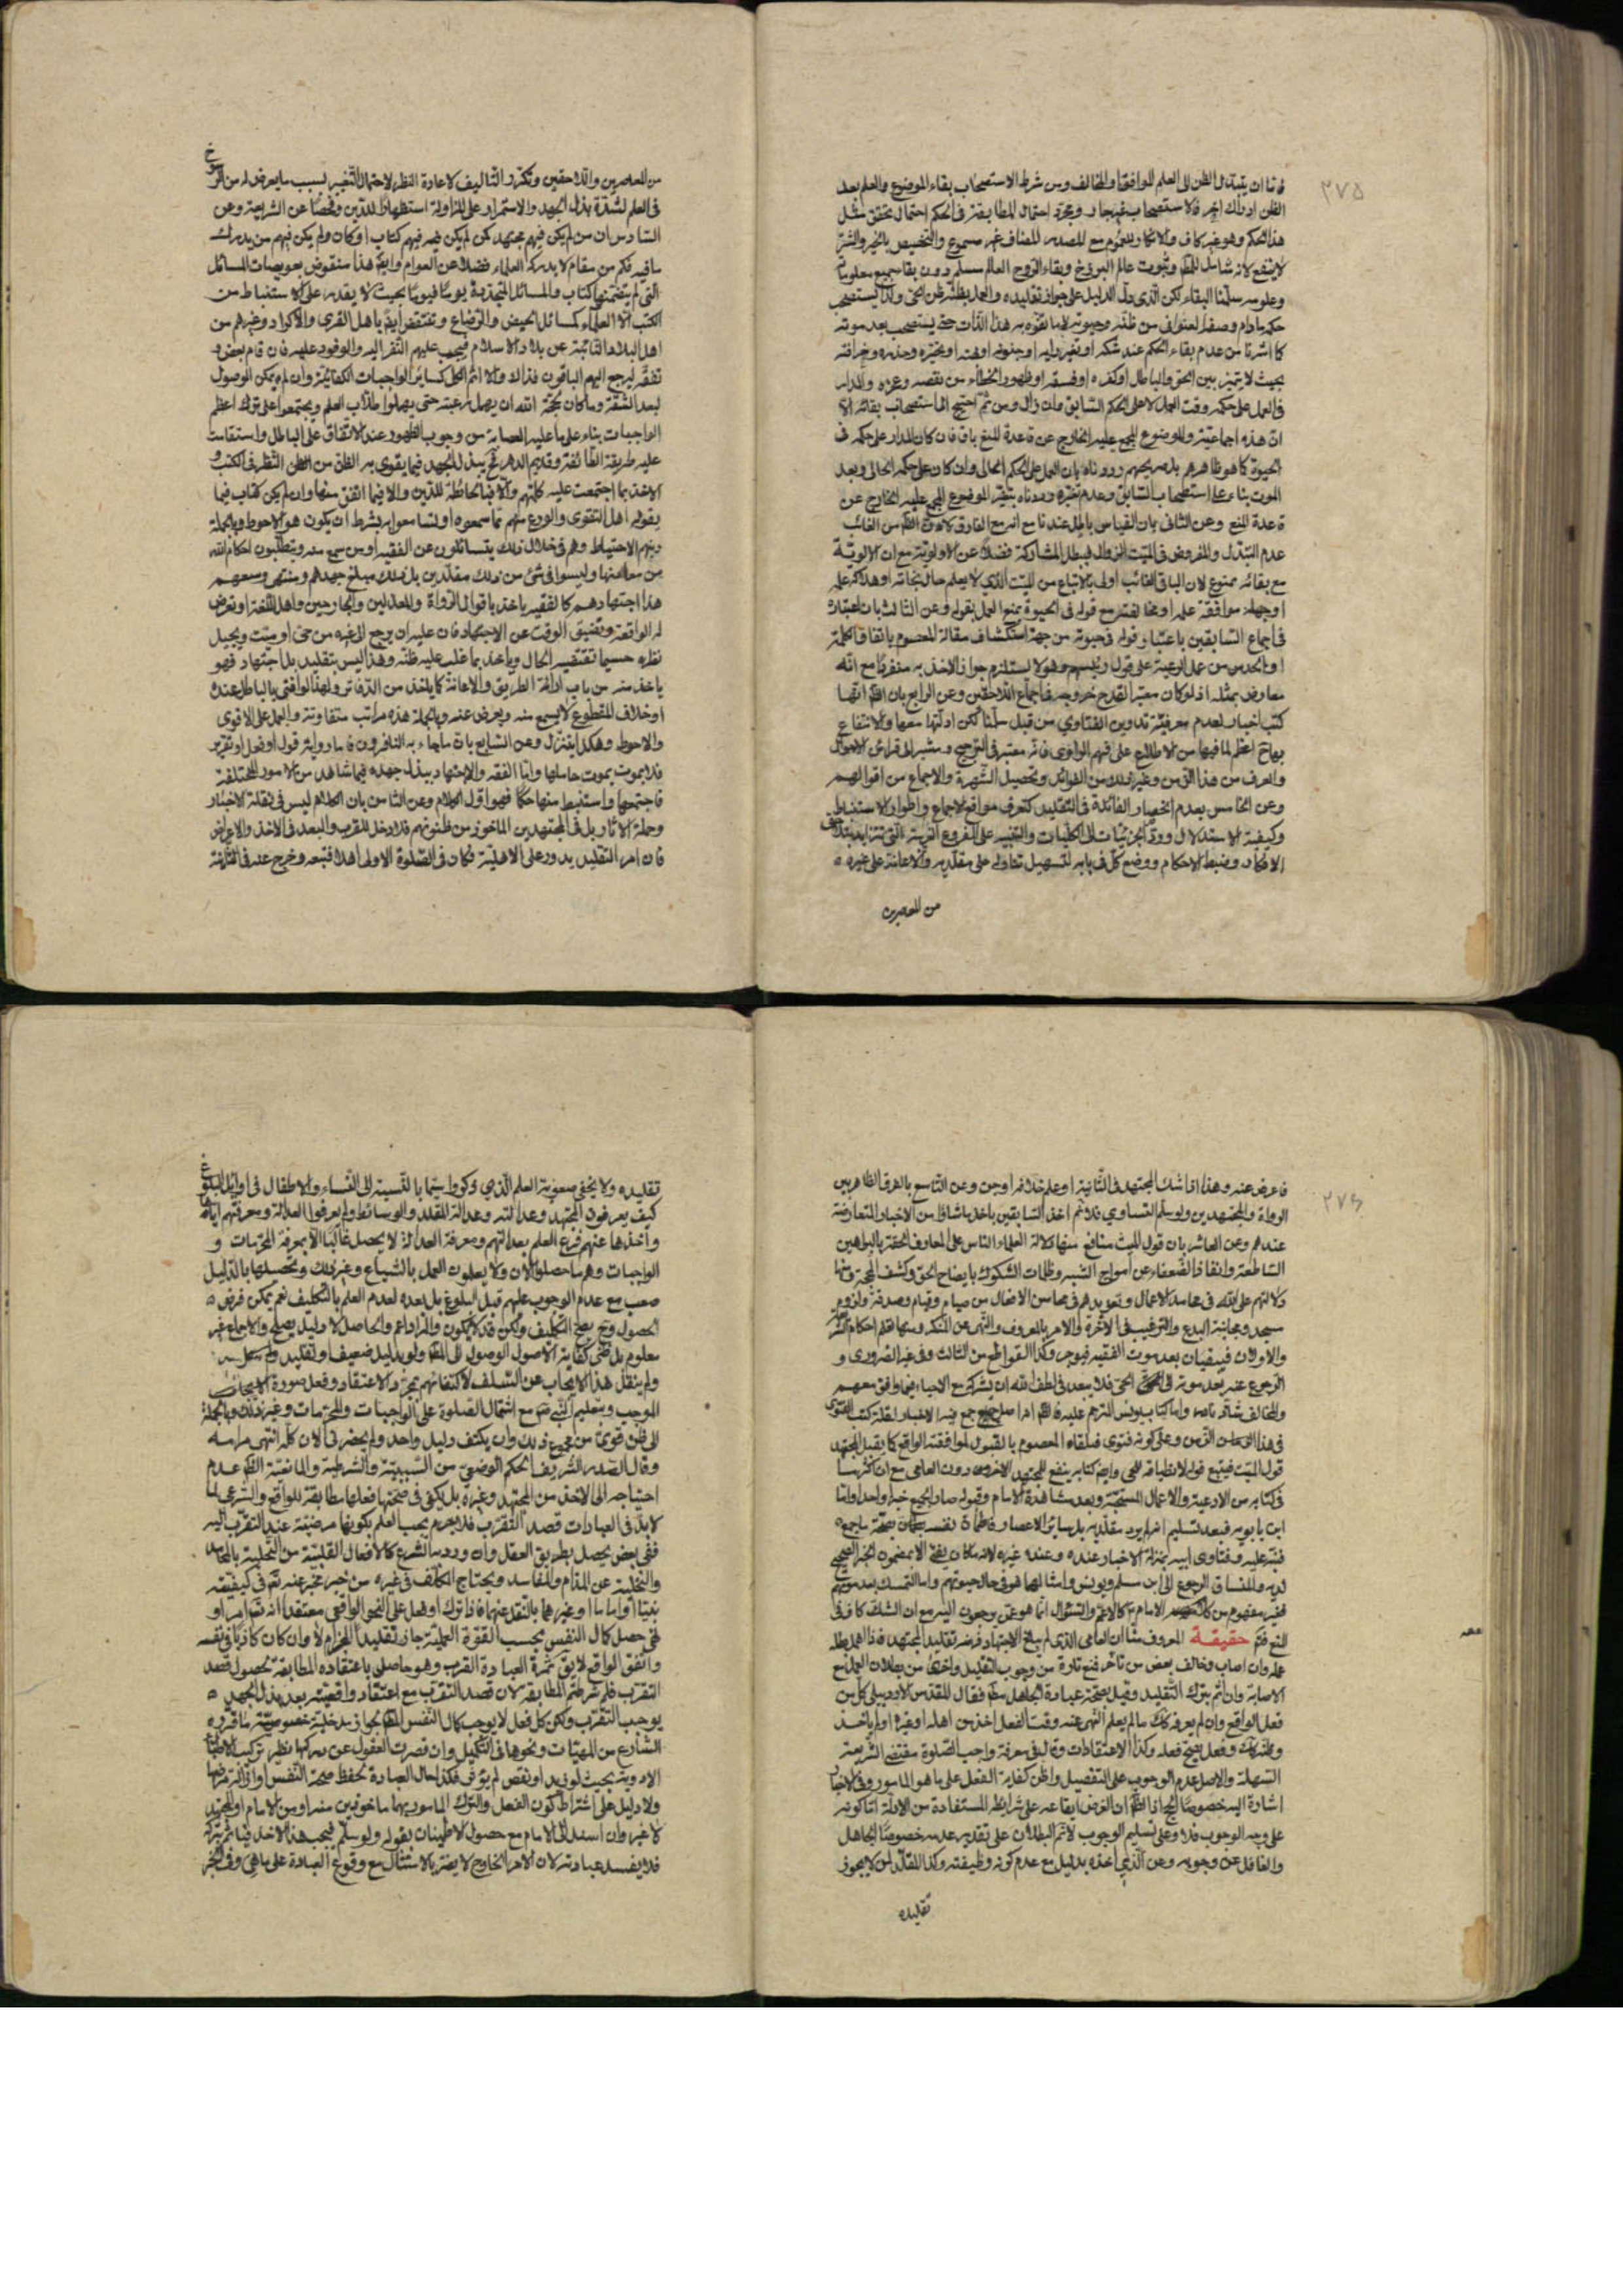 ٢٧٥
فاما ان يتبدل الظن الى العلم للموافق او المخالف ومن شرط الاستصحاب بقاء الموضوع والعلم بعد
الظن ادراك اخر فالاستصحاب غير جار ومجرد احتمال المطابقة في الحكم احتمال تحقق مثل
هذا الحكم وهو غير كاف والاتكال بالعموم مع المصدر المضاف غير مسموع والتخصيص بالخير والشر
لا ينفع لانه شامل للظن وثبوت عالم البرزخ وبقاء الروح العالم مسلم دون بقاء جميع معلوماته
وعلومه سلمنا البقاء لكن الذي دل الدليل على جواز تقليده والعمل بظنه ظن الحي ولذا يستصحب
حكمه مادام وصفا لعنوان من ظنه وحيوته لا ما تفوه به هذا الذات حتى يستصحب بعد موته
كما اشرنا من عدم بقاء الحكم عند شكه او تغير رايه او جنونه او وتحيره وخرافته
بحيث لا يتميز بين الحق والباطل او كفره او فسقه او ظهور الخطاء من نقصه وغيره والمدار
في العمل على حكمه وقت العمل لا على الحكم السابق وان زال ومن ثم احتيج الى استصحاب بقائه الا
ان هذه اجماعية والموضوع المجمع عليه الخارج عن قاعدة المنع باق فان كان المدار على حكمه في
الحيوة كما هو ظاهرهم بل صريحهم رددناه بان العمل على الحكم الحالي وان كان على حكمه الحالي وبعد
الموت بناء على استصحاب السابق وعدم تغيره رددناه بتغير الموضوع المجمع عليه الخارج عن
قاعدة المنع وعن الثاني بان القياس باطل عندنا مع انه مع الفارق لان الظاهر من الغائب
عدم التبدل والمفروض في الميت الزوال فيبطل المشاركة فضلا عن الاولوية مع ان الاولوية
مع بقائه ممنوع لان الباقي الغائب اولى بالاتباع من الميت الذي لا يعلم حال نجاته او هلاكه علمه
او جهله موافقة علمه او مخالفته مع قوله في الحيوة بمنع العمل بقوله وعن الثالث بان اعتبار
في اجماع السابقين باعتبار قوله في حيوته من جهة استكشاف مقالة المعصوم باتفاق الكلمة
او الحدس من عمل الرعية على قول رئيسهم وهو لا يستلزم جواز الاخذ به منفردا مع انه
معارض بمثله اذ لو كان معتبرا لقدح خروجه في اجماع اللاحقين وعن الرابع بان الظاهر انها
كتب اخبار لعدم معروفية تدوين الفتاوي من قبل سلمنا لكن ادلتها معها والانتفاع
بها ح اعظم لما فيها من الاطلاع على فهم الراوي فانه معتبر في الترجيح ومشير الى قرائن الاحوال
والعرف من هذا القرن وغير ذلك من الفوائد وتحصيل الشهرة والاجماع من اقوالهم
وعن الخامس بعدم انحصار الفائدة في التقليد كتعرف مواقع الاجماع واطوار الاستنباط
وكيفية الاستدلال وردّ الجزئيات الى الكليات والتنبيه على الفروع الغريبة التي تتزايد بتلاحق
الافكار وضبط الاحكام ووضع كل في بابه لتسهيل تناوله على مقلديه والاعانة على غيره
من المعاصرين
من المعاصرين واللاحقين وتكرر التاليف لاعادة النظر لاحتمال التغيير بسبب ما يعرض له من الرسوخ
في العلم لشدة بذل الجهد والاستمرار على المزاولة استظهارا للدين وفحصا عن الشريعة وعن
السادس ان من لم يكن فيهم مجتهد كمن لم يكن فيهم كتاب او كان ولم يكن فيهم من يدرك
ما فيه فكم من مقام لا يدركه العلماء فضلا عن العوام وايضا هذا منقوض بعويصات المسائل
التي لم يتضمنها كتاب والمسائل المتجددة يوما فيوما بحيث لا يقدر على الاستنباط من
الكتب الا العلماء كمسائل الحيض والرضاع وينتقض ايضا باهل القرى والاكراد وغيرهم من
اهل البلاد النائية عن بلاد الاسلام فيجب عليهم النفر اليه والوفود عليه فان قام بعض و
تفقه ليرجع اليهم الباقون فذاك والا اثم الكل كسائر الواجبات الكفائية وان لم يمكن الوصول
لبعد الشقة وما كان بحجة الله ان يهمل رعيته حتى يهملوا طلاب العلم ويجتمعوا على ترك اعظم
الواجبات بناء على ما عليه العصابة من وجوب الظهور عند الاتفاق على الباطل واستقامت
عليه طريقة الطائفة وقديم الدهر فح يبذل الجهد فيما يقوى به الظن من النظر في الكتب و
الاخذ بما اجتمعت عليه كلمتهم والا فبالحائطة للدين والا فيما اتفق منها وان لم يكن كتاب فبما
يقوله اهل التقوى والورع منهم مما سمعوه او تسامعوا به بشرط ان يكون هو الاحوط وبالجملة
دينهم الاحتياط وهم في خلال ذلك يتسائلون عن الفقيه او من سمع منه ويتطلبون احكام الله
من معادنها وليسوا في شئ من ذلك مقلدين بل ذلك مبلغ جهدهم ومنتهى وسعهم
هذا اجتهادهم كالفقيه ياخذ باقوال الرواة والمعدلين والجارحين واهل اللغة او تعرض
له الواقعة وتضيق الوقت عن الاجتهاد فان عليه ان يرجع الى غيره من حي او ميت ويجيل
نظره حسبما تقتضيه الحال وياخذ بما غلب عليه ظنه وهذا ليس بتقليد بل اجتهاد فهو
ياخذ منه من باب اراءة الطريق والاعانة كما ياخذ من الدفاتر ولهذا لو افتى بالباطل عنده
او خلاف المقطوع لا يسمع منه ويعرض عنه وبالجملة هذه مراتب متفاوتة والعمل على الاقوى
والاحوط وهكذا يتنزل وعن السابع بان ما جاء به النافرون فاما رواية قول او فعل او تقرير
فلا يموت بموت حاملها واما الفقه والاجتهاد ببذل جهده فيما شاهد من الامور المختلفة
فاجتمعها واستنبط منها حكما فهو اول الكلام وعن الثامن بان الكلام ليس في نقلة الاخبار
وحملة الاثار بل في المجتهدين الماخوذ من ظنونهم فلا دخل للقرب والبعد في الاخذ والاعراض
فان امر التقليد يدور على الاهلية فكان في الصلوة الاولى اهلا فتبعه وخرج عنه في الثانية
٢٧٦
فاعرض عنه وهذا اذا شك المجتهد في الثانية او علم خلافه او جن وعن التاسع بالفرق الظاهر بين
الرواة والمجتهدين ولو سلم التساوي فلا ثم اخذ السابقين باخذ ما شاؤا من الاخبار المتعارضة
عندهم وعن العاشر بان قول الميت منافع منها دلالة العلماء والناس على المعارف الحقة بالبراهين
الساطعة وانقاذ الضعفاء عن امواج الشبه وظلمات الشكوك بايضاح الحق وكشف الحجة ومنها
دلالتهم على الله في محاسن الاعمال وتعويدهم في محاسن الافعال من صيام وقيام وصدقة ولزوم
مسجد ومجانبة البدع والترغيب في الاخرة والامر بالمعروف والنهي عن المنكر ومنها نقل احكام
والاولان فيبقيان بعد موت الفقيه فيوجر وكذا القواطع من الثالث وفي غير الضروري و
الرجوع عنه بعد موته الى الحي فلا يبعد في لطف الله ان يشركه مع الاحياء فيما وافق معهم
والمخالف شاذ نادر واما كتاب يونس الظاهر انه اصل جمع فيه الاخبار لقلة كتب الفتوى
في هذا القرن وعلى كونه فتوى فتلقاه المعصوم بالقبول لموافقته الواقع كما يقبل المجتهد
قول الميت فيتبع قوله لانطباقه للحي وايضا كتابه ينفع المجتهد الاخر دون العامي مع ان اكثر ما
في كتابه من الادعية والاعمال المستحبة وبعد مشاهدة الامام وقبوله صار الجميع خبرا واحدا واما
ابن بابويه فبعد تسليم انه لم يرد مقلديه بل سائر الاعصار نفسه بصحة ما جمعه
فنبه عليه وفتاوى ابيه بمنزلة الاخبار عنده وعند غيره لانه ما كان يفتي الا بمضمون الخبر الصحيح
لديه والمنساق الرجوع الى ابن مسلم ويونس وامثالهما هو في حال حيوتهم واما التمسك بعد موتهم
فغير مفهوم من الامام كالاعم والسئوال انما هو عمن يرجعون اليه مع ان الشك كاف في
المنع فتم حقيقة المعروف منا ان العامي الذي لم يبلغ الاجتهاد فرضه تقليد المجتهد فاذا اهمل بطل
عمله وان اصاب وخالف بعض من تاخر فمنع تارة من وجوب التقليد واخرى من بطلان العمل مع
الاصابة وان اثم بترك التقليد وقيل بصحة عبادة الجاهل مطلقا فقال المقدس الاردبيلي كل من
فعل الواقع وان لم يعرفه كذلك ما لم يعلم النهي عنه وقت الفعل اخذ من اهله او غيره او لم ياخذ
وظنه كذلك وفعل يصح فعله وكذا الاعتقادات وقال في معرفة واجب الصلوة مقتضى الشريعة
السهلة والاصل عدم الوجوب على التفصيل واظن كفاية الفعل على ما هو المامور وفي الاخبار
اشارة اليه خصوصا الحج اذ الظاهر ان الغرض ايقاعه على شرائطه المستفادة من الادلة اما كونه
على وجه الوجوب فلا وعلى تسليم الوجوب لا ثم البطلان على تقدير عدمه خصوصا الجاهل
والغافل عن وجوبه وعن الذي اخذه بدليل مع عدم كونه وظيفته وكذا المقلد لمن لا يجوز
تقليده
تقليده ولا يخفى صعوبة العلم الذي ذكروا سيما بالنسبة الى النساء والاطفال في اوائل البلوغ
كيف يعرفون المجتهد وعدالته وعدالة المقلد والوسائط ولم يعرفوا العدالة ومعرفتهم اياها
واخذها عنهم فرع العلم بعدالتهم ومعرفة العدالة لا يحصل غالبا الا بمعرفة المحرمات و
الواجبات وهم ما حصلوا الان ولا يعلمون العمل بالشياع وغير ذلك وتحصيلها بالدليل
صعب مع عدم الوجوب عليهم قبل البلوغ بل بعده لعدم العلم بالتكليف نعم يمكن فرض
الحصول وح يصح التكليف ولكن قد لا يكون والمراد اعم والحاصل لا دليل يصلح والاجماع غير
معلوم بل ظني كفاية الاصول الوصول الى الحق ولو بدليل ضعيف او تقليد
ولم ينقل هذا الايجاب عن السلف لاكتفائهم بمجرد الاعتقاد وفعل صورة الايجاب
الموجب وبتعليم النبي ص مع اشتمال الصلوة على الواجبات والمحرمات وغير ذلك وبالجملة
الى ظن قوي من مجموع ذلك وان يكتف دليل واحد ولم يحضرني الان كله انتهى مرامه
وقال الصدر الشريف الحكم الوضعي من السببية والشرطية والمانعية الظاهر عدم
احتياجه الى الاخذ من المجتهد وغيره بل يكفي في صحتها فعلها مطابقة للواقع والشرعي لما
لا بد في العبادات قصد التقرب فلا يجرم يجب العلم بكونها مرضية عند المتقرب اليه
ففي بعض يحصل بطريق العقل وان ورد به الشرع كالافعال القلبية من التحلية بالمحامد
والتخلية عن الذمائم والمفاسد ويحتاج المكلف في غيره من خبر مخبر عنه ثقة في كيفيته
نبيا او اماما او غيرهما بالنقل عنهما فاذا ترك او فعل على النحو الواقعي معتقدا انه ثم امر او
نهي حصل كمال النفس بحسب القوة العملية جاز تقليد المخبر ام لا وان كان كاذبا في نفسه
واتفق الواقع لايق ثمرة العبادة القرب وهو حاصل باعتقاده المطابقة لحصول قصد
التقرب فلم شرطتم المطابقة لان قصد التقرب مع اعتقاد واقعيته بعد بذل الجهد
يوجب التقرب ولكن كل فعل لا يوجب كمال النفس لجواز مدخلية خصوصية ما قرره
الشارع من الهيئات ونحوها في التكميل وان قصرت العقول عن دركها نظير تركيب الاطباء
الادوية بحيث لو زيد او نقص لم يؤثر فكذا حال العبادة لحفظ صحة النفس او ازالة مرضها
ولا دليل على اشتراط كون الفعل والترك المامور بهما ماخوذين منه او من الامام او المجتهد
لا غير وان اسند الى الامام مع حصول الاطمينان بقوله ولو سلم فيجب هذا الاخذ فياثم بتركه
فلا يفسد عبادته لان الامر الخارج لا يضر بالامتثال مع وقوع العبادة على ما هي وفي الخبر